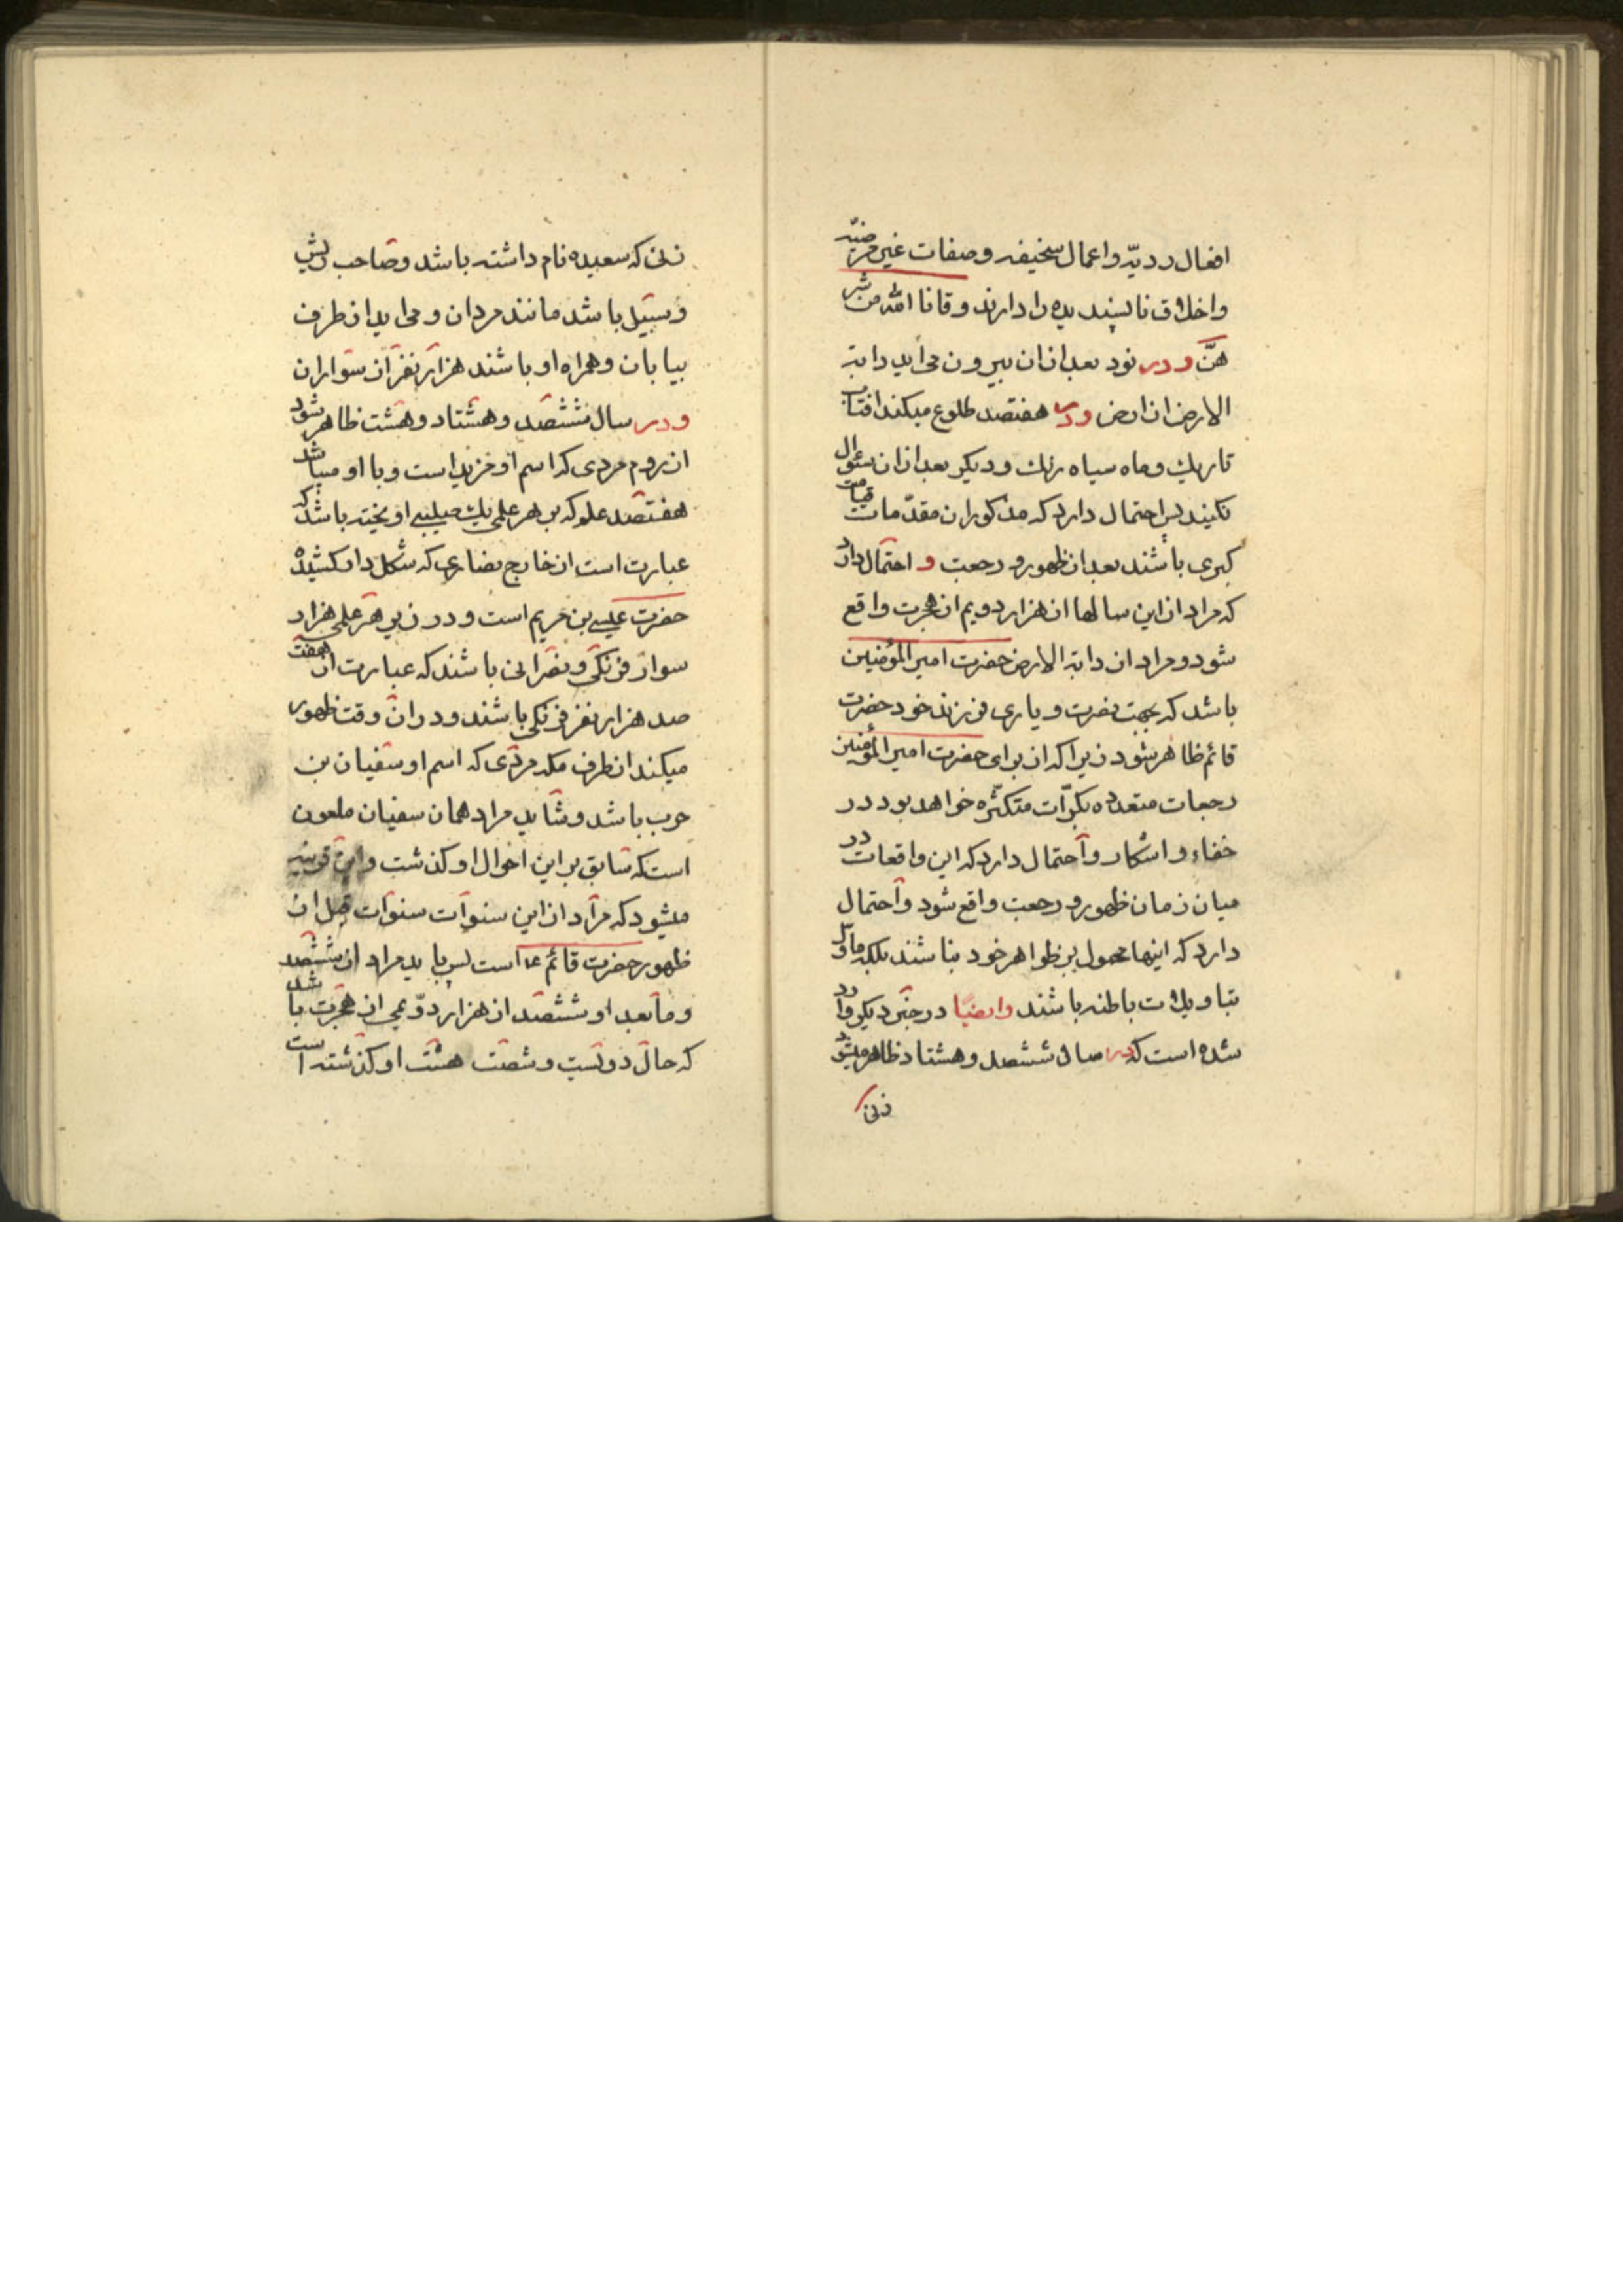 افعال رديّه واعمال سخيفه وصفات غير مرضيّه
واخلاق ناپسنديده را دارند وقانا الله من شر
هنّ ودر نود بعد از ان بيرون مى ايد دابة
الارض از ارض ودر هفتصد طلوع ميكند افتاب
تاريك وماه سياه رنك وديكر بعد از ان سئوال
نكنيد پس احتمال دارد كه مذكوران مقدّمات قيامت
كبرى باشند بعد از ظهور ورجعت و احتمال دارد
كه مراد از اين سالها از هزار دويم از هجرت واقع
شود ومراد از دابة الارض حضرت امير المؤمنين
باشد كه بجهت نصرت ويارى فرزند خود حضرت
قائم ظاهر شود زيرا كه از براى حضرت امير المؤمنين
رجعات متعدده بكرّات متكثّره خواهد بود در
خفاء واشكار واحتمال دارد كه اين واقعات در
ميان زمان ظهور ورجعت واقع شود واحتمال
دارد كه اينها محمول بر ظواهر خود نباشند بلكه ماوّل
بتاويلات باطنه باشند وايضا در خبرى ديكر وارد
شده است كه در سال ششصد وهشتاد ظاهر ميشود
زنى
زنى كه سعيده نام داشته باشد وصاحب ريش
وسبيل باشد مانند مردان ومى ايد از طرف
بيابان وهمراه او باشند هزار نفر از سواران
ودر سال ششصد وهشتاد وهشت ظاهر شود
از روم مردى كه اسم او مزيد است وبا او ميباشد
هفتصد علم كه بر هر علمى يك صليبى اويخته باشد كه
عبارت است از خاج نصارى كه شكل دار كشيدن
حضرت عيسى بن مريم است ودر زير هر علمى هزار
سوار فرنكى ونصرانى باشند كه عبارت از هفت
صد هزار نفر فرنكى باشند ودر ان وقت ظهور
ميكند از طرف مكه مردى كه اسم او سفيان بن
حرب باشد وشايد مراد همان سفيان ملعون
است كه سابق بر اين احوال او كذشت واين قرينه
ميشود كه مراد از اين سنوات سنوات قبل از
ظهور حضرت قائم ع است پس بايد مراد از ششصد
وما بعد او ششصد از هزار دوّيمى از هجرت باشد
كه حال دويست وشصت هشت او كذشته است